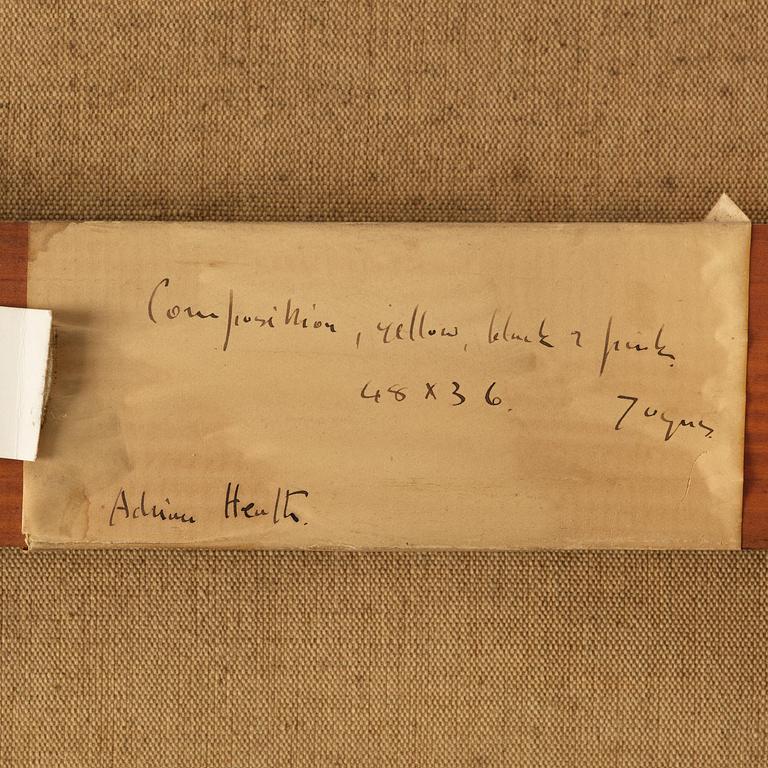 Composition, yellow, black & pink.
48 x 36.
70 gns.
Adrian Heath.